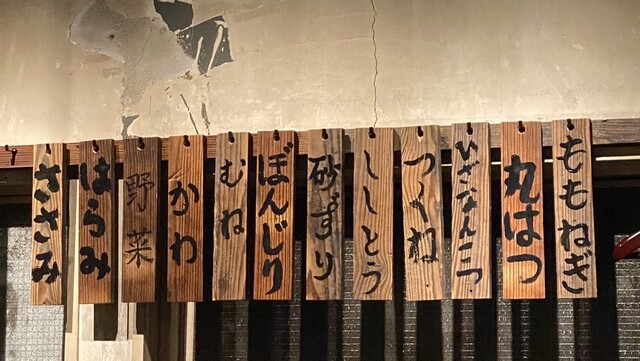 ももねぎ
丸はつ
ひざなんこつ
つくね
ししとう
砂ずり
ぼんじり
むね
かわ
野菜
はらみ
ささみ